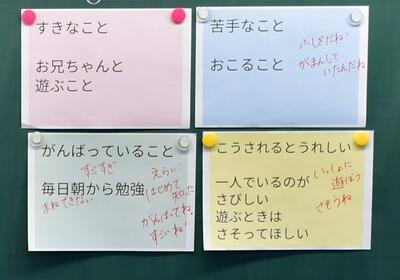 すきなこと
お兄ちゃんと
遊ぶこと
苦手なこと
おこること
ふしぎだね!
がまんして
いたんだね
がんばっていること
毎日朝から勉強
すごすぎ
まねできない
えらい
はじめて
知った
がんばってね。
すごいね!
こうされるとうれしい
一人でいるのが
さびしい
遊ぶときは
さそってほしい
いっしょに
遊ぼう
さそうね